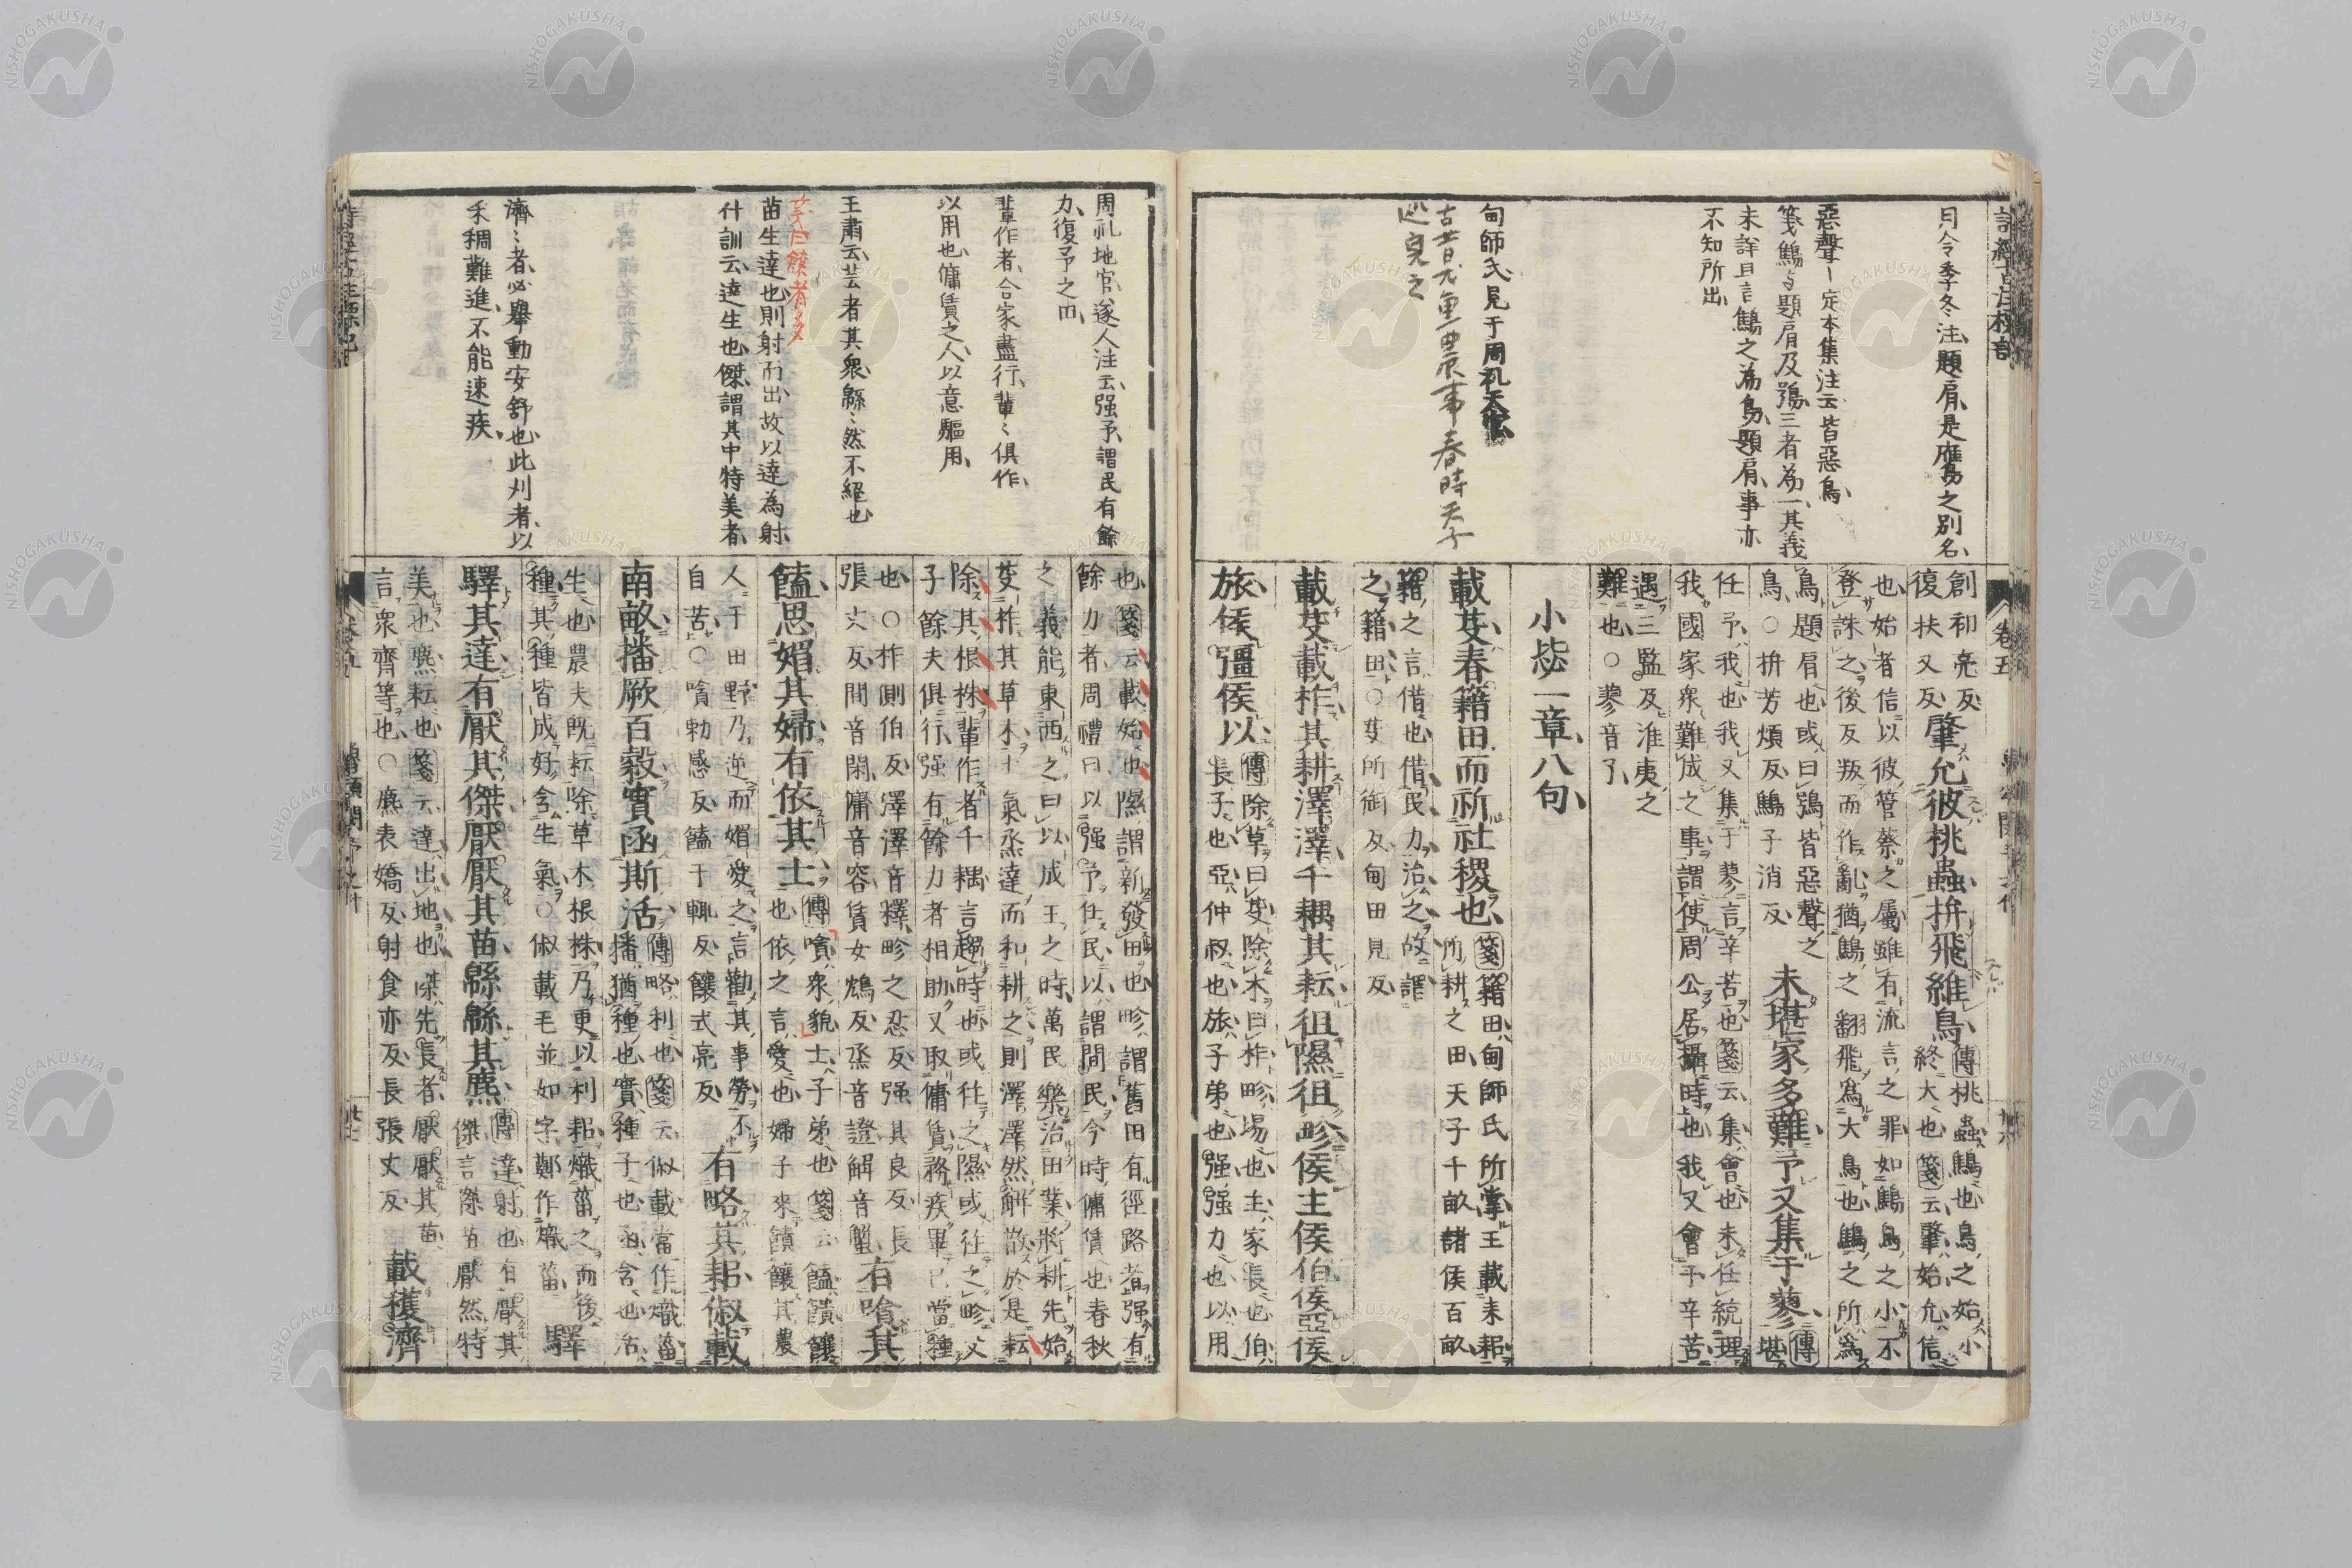 月令季冬注、題肩、是鷹之別名、
惡聲ー定本集注云、皆惡鳥、
箋鷦与題肩及鴞、三者為一、其義
未詳且言鷦之為鳥、題肩、事亦
不知所出、
甸師氏見于周礼天官
古昔
農事春時天子
之
創初亮反
復扶又反
肇允彼桃蟲拚飛維鳥
傳桃蟲鷦也鳥之始小
終大也箋云肇始允信
也始者信以彼管蔡之屬雖有流言之罪如鷦鳥之小不
登誅之後反叛而作亂猶鷦之翻飛爲大鳥也鷦之所爲
鳥題肩也或曰鴞皆惡聲之
鳥○拚芳煩反鷦子消反
未堪家多難予又集于蓼
傳
堪
任予我也我又集于蓼言辛苦也箋云集會也未任統理
我國家衆難成之事謂使周公居攝時也我又會于辛苦
遇三監及淮夷之
難也○蓼音了
小毖一章八句
載芟春籍田而祈社稷也
箋籍田甸師氏所掌王載耒耜
所耕之田天子千畝諸侯百畝
籍之言借也借民力治之故謂
之籍田○芟所銜反甸田見反
載芟載柞其耕澤澤千耦其耘徂隰徂畛侯主侯伯侯亞侯
旅侯彊侯以
傳除草曰芟除木曰柞畛場也主家長也伯
長子也亞仲叔也旅子弟也强强力也以用
周礼地官遂人注云、强予、謂民有餘
力、復予之田、
輩作者、合家盡行、輩〻俱作、
以用也、傭賃之人、以意驅用、
王肅云、芸者其衆、緜〻然不絕也
苗生達也、則射而出、故以達為射、
什訓云、達生也、傑、謂其中特美者、
濟〻者、必舉動安舒也、此刈者、以
禾稠難進、不能速疾、
也箋云載始也隰謂新發田也畛謂舊田有徑路者强有
餘力者周禮曰以强予任民以謂閒民今時傭賃也春秋
之義能東西之曰以成王之時萬民樂治田業將耕先始
芟柞其草木土氣烝達而和耕之則澤澤然解散於是耘
除其根株輩作者千耦言趨時也或往之隰或往之畛父
子餘夫俱行强有餘力者相助又取傭賃務疾畢已當種
也○柞側伯反澤澤音釋畛之忍反强其良反長
張丈反閒音閑傭音容賃女鴆反烝音證解音蟹
有嗿其
饁思媚其婦有依其士
傳嗿衆貌士子弟也箋云饁饋饟
也依之言愛也婦子來饋饟其農
人于田野乃逆而媚愛之言勸其事勞不
自苦○嗿勑感反饁于輒反饟式亮反
有略其耜俶載
南畝播厥百穀實函斯活
傳略利也箋云俶載當作熾菑
播猶種也實種子也函含也活
生也農夫既耘除草木根株乃更以利耜熾菑之而後
種其種皆成好含生氣○俶載毛並如字鄭作熾菑
驛
驛其達有厭其傑厭厭其苗緜緜其麃
傳達射也有厭其
傑言傑苗厭然特
美也麃耘也箋云達出地也傑先長者厭厭其苗
言衆齊等也○麃表嬌反射食亦反長張丈反
載穫濟
卷五